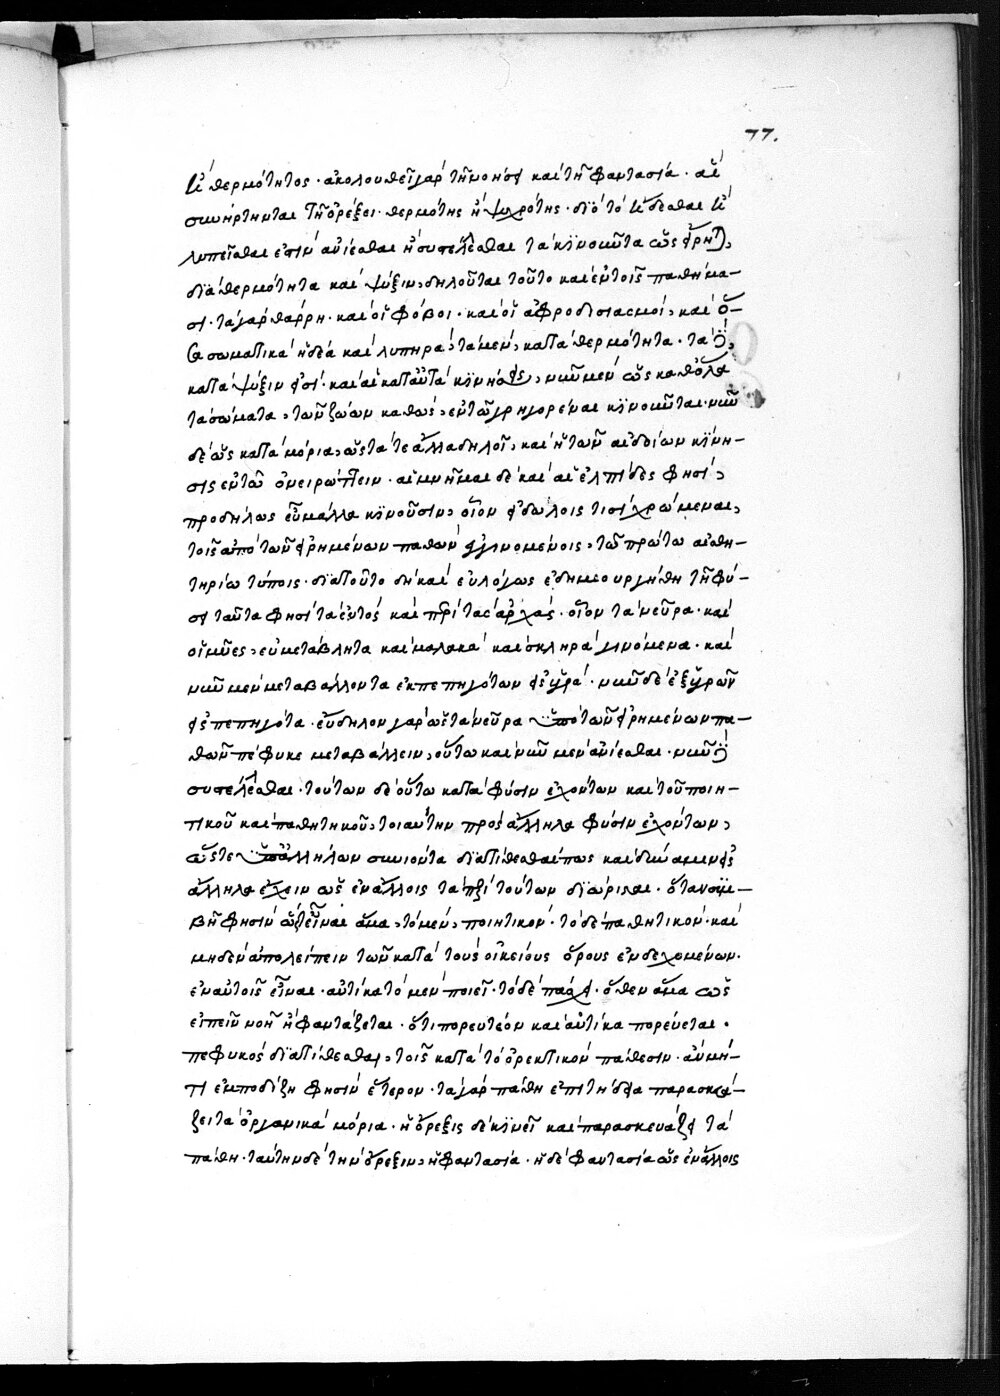 77.
καὶ θερμότητος · ἀκολουθεῖ γὰρ τῇ νοήσει καὶ τῇ φαντασίᾳ · αἳ
συνήρτηνται τῇ ὀρέξει · θερμότης ἢ ψυχρότης · διὸ τὸ ἥδεσθαι καὶ
λυπεῖσθαι ἐστὶν ἀνίεσθαι ἢ συστέλλεσθαι τὰ κινοῦντα ὡς εἴρηται,
διὰ θερμότητα καὶ ψύξιν, δηλοῦται τοῦτο καὶ ἐν τοῖς παθήμα-
σι · τὰ γὰρ θάρρη · καὶ οἱ φόβοι · καὶ οἱ ἀφροδισιασμοί, καὶ ὅ-
σα σωματικὰ ἡδέα καὶ λυπηρά, τὰ μὲν, κατὰ θερμότητα · τὰ δὲ,
κατὰ ψύξιν εἰσί · καὶ αἱ κατ' αὐτὰ κινήσεις, νῦν μὲν ὡς καθόλα
τὰ σώματα, τῶν ζώων καθὼς, ἐν τῷ γρηγορέναι κινοῦνται · νῦν
δὲ ὡς κατὰ μόρια, ὥς τά τε ἄλλα δηλοῖ, καὶ ἡ τῶν αἰδοίων κίνη-
σις ἐν τῷ ὀνειρώττειν · αἱ μνῆμαι δὲ καὶ αἱ ἐλπίδες φησὶ,
προδήλως εὖ μάλα κινοῦσιν, οἷον εἰδώλοις τισὶ χρώμεναι,
τοῖς ἀπὸ τῶν εἰρημένων παθῶν ἐγγινομένοις, τῷ πρώτῳ αἰσθη-
τηρίῳ τύποις · διὰ τοῦτο δὴ καὶ εὐλόγως ἐδημιουργήθη τῇ φύ-
σει ταῦτα φησὶ τὰ ἐντὸς καὶ περὶ τὰς ἀρχάς · οἷον τὰ νεῦρα · καὶ
οἱ μῦες, εὐμετάβλητα καὶ μαλακὰ καὶ σκληρὰ γινόμενα · καὶ
νῦν μὲν μεταβάλλοντα ἐκ πεπηγότων εἰς ὑγρά · νῦν δὲ ἐξ ὑγρῶν
εἰς πεπηγότα · εὔδηλον γὰρ ὡς τὰ νεῦρα ὑπὸ τῶν εἰρημένων πα-
θῶν πέφυκε μεταβάλλειν, οὕτω καὶ νῦν μὲν ἀνίεσθαι · νῦν δὲ
συστέλλεσθαι · τούτων δὲ οὕτω κατὰ φύσιν ἐχόντων καὶ τοῦ ποιη-
τικοῦ καὶ παθητικοῦ, τοιαύτην πρὸς ἄλληλα φύσιν ἐχόντων,
ὥστε ὑπ' ἀλλήλων συνιόντα διατίθεσθαι πως καὶ δύναμιν εἰς
ἄλληλα ἔχειν ὡς ἐν ἄλλοις τὰ περὶ τούτων διώρισται · ὅταν συμ-
βῇ φησὶν ὥστ' εἶναι ἅμα, τὸ μὲν, ποιητικόν · τὸ δὲ παθητικὸν · καὶ
μηδὲν ἀπολείπειν τῶν κατὰ τοὺς οἰκείους ὅρους ἐνδεχομένων ·
ἐν αὐτοῖς εἶναι · αὐτίκα τὸ μὲν ποιεῖ · τὸ δὲ πάσχει · ὅθεν ἅμα ὡς
εἰπεῖν νοῆ ἢ φαντάζεται · ὅτι πορευτέον καὶ αὐτίκα πορεύεται ·
πεφυκὸς διατίθεσθαι, τοῖς κατὰ τὸ ὀρεκτικὸν πάθεσιν · ἂν μή-
τι ἐμποδίζῃ φησὶν ἕτερον · τὰ γὰρ πάθη ἐπιτήδεια παρασκευά-
ζει τὰ ὀργανικὰ μόρια · ἡ ὄρεξις δὲ κινεῖ καὶ παρασκευάζει τὰ
πάθη · ταύτην δὲ τὴν ὄρεξιν, ἡ φαντασία · ἡ δὲ φαντασία ὡς ἐν ἄλλοις